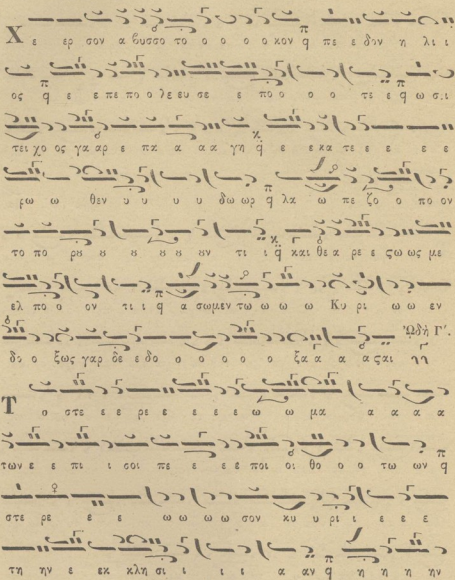 Χ ε ερ σον α βυσσο το ο ο ο ο κον π q πε ε δον η λι ι
ος π q ε ε πε πο ο λε ευ σε ε πο ο ο ο τε ε π q ω σι
τει χο ος γα αρ ε πα α α α γη κ q ε ε κα τε ε ε ε ε
ρω ω θεν υ υ υ υ δω ωρ π q λα ω πε ζο ο πο ον
το πο ρȣ ȣ ȣ ȣ ȣ ȣν τι ι κ q και θε α ρε ε ςω ως με
ελ πο ο ον τι ι π q α σωμεν τω ω ω ω Κυ ρι ω ω εν
δο ο ξως γαρ δε ε δο ο ο ο ο ο ξα α α α ςαι Ὠδὴ Γʹ.
Τ ο στε ε ε ρε ε ε ε ε ω ω μα α α α α
των ε ε πι ι σοι πε ε ε ε ε ποι οι θο ο ο τω ων π q
στε ρε ε ε ω ω ω ω σον κυ υ ρι ι ε ε ε
τη ην ε εκ κλη σι ι ι ι α αν π q η η η ην